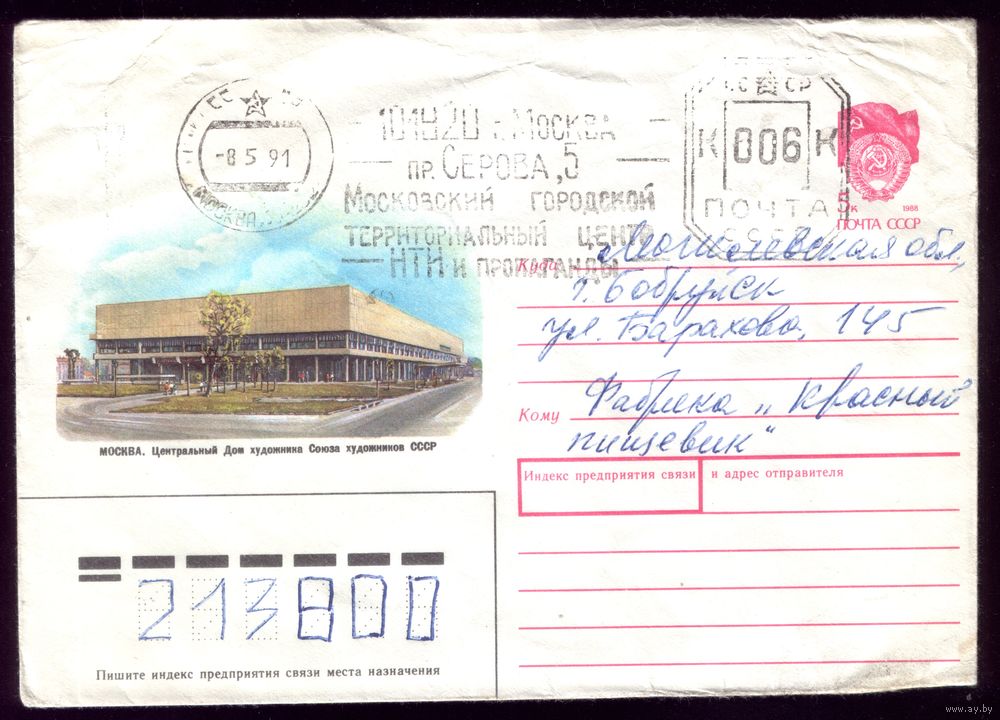 -8 5 91
МОСКВА
г. МОСКВА
ПР. СЕРОВА, 5
МОСКОВСКИЙ ГОРОДСКОЙ
ТЕРРИТОРИАЛЬНЫЙ ЦЕНТР
НТИ И ПРОПАГАНДЫ
СССР
К 006 К
ПОЧТА
5к 1988
ПОЧТА СССР
Куда Могилевская обл.,
г. Бобруйск
ул. Бахарова, 145
Кому Фабрика „Красный
пищевик"
МОСКВА. Центральный Дом художника Союза художников СССР
Индекс предприятия связи и адрес отправителя
213800
Пишите индекс предприятия связи места назначения
www.ay.by